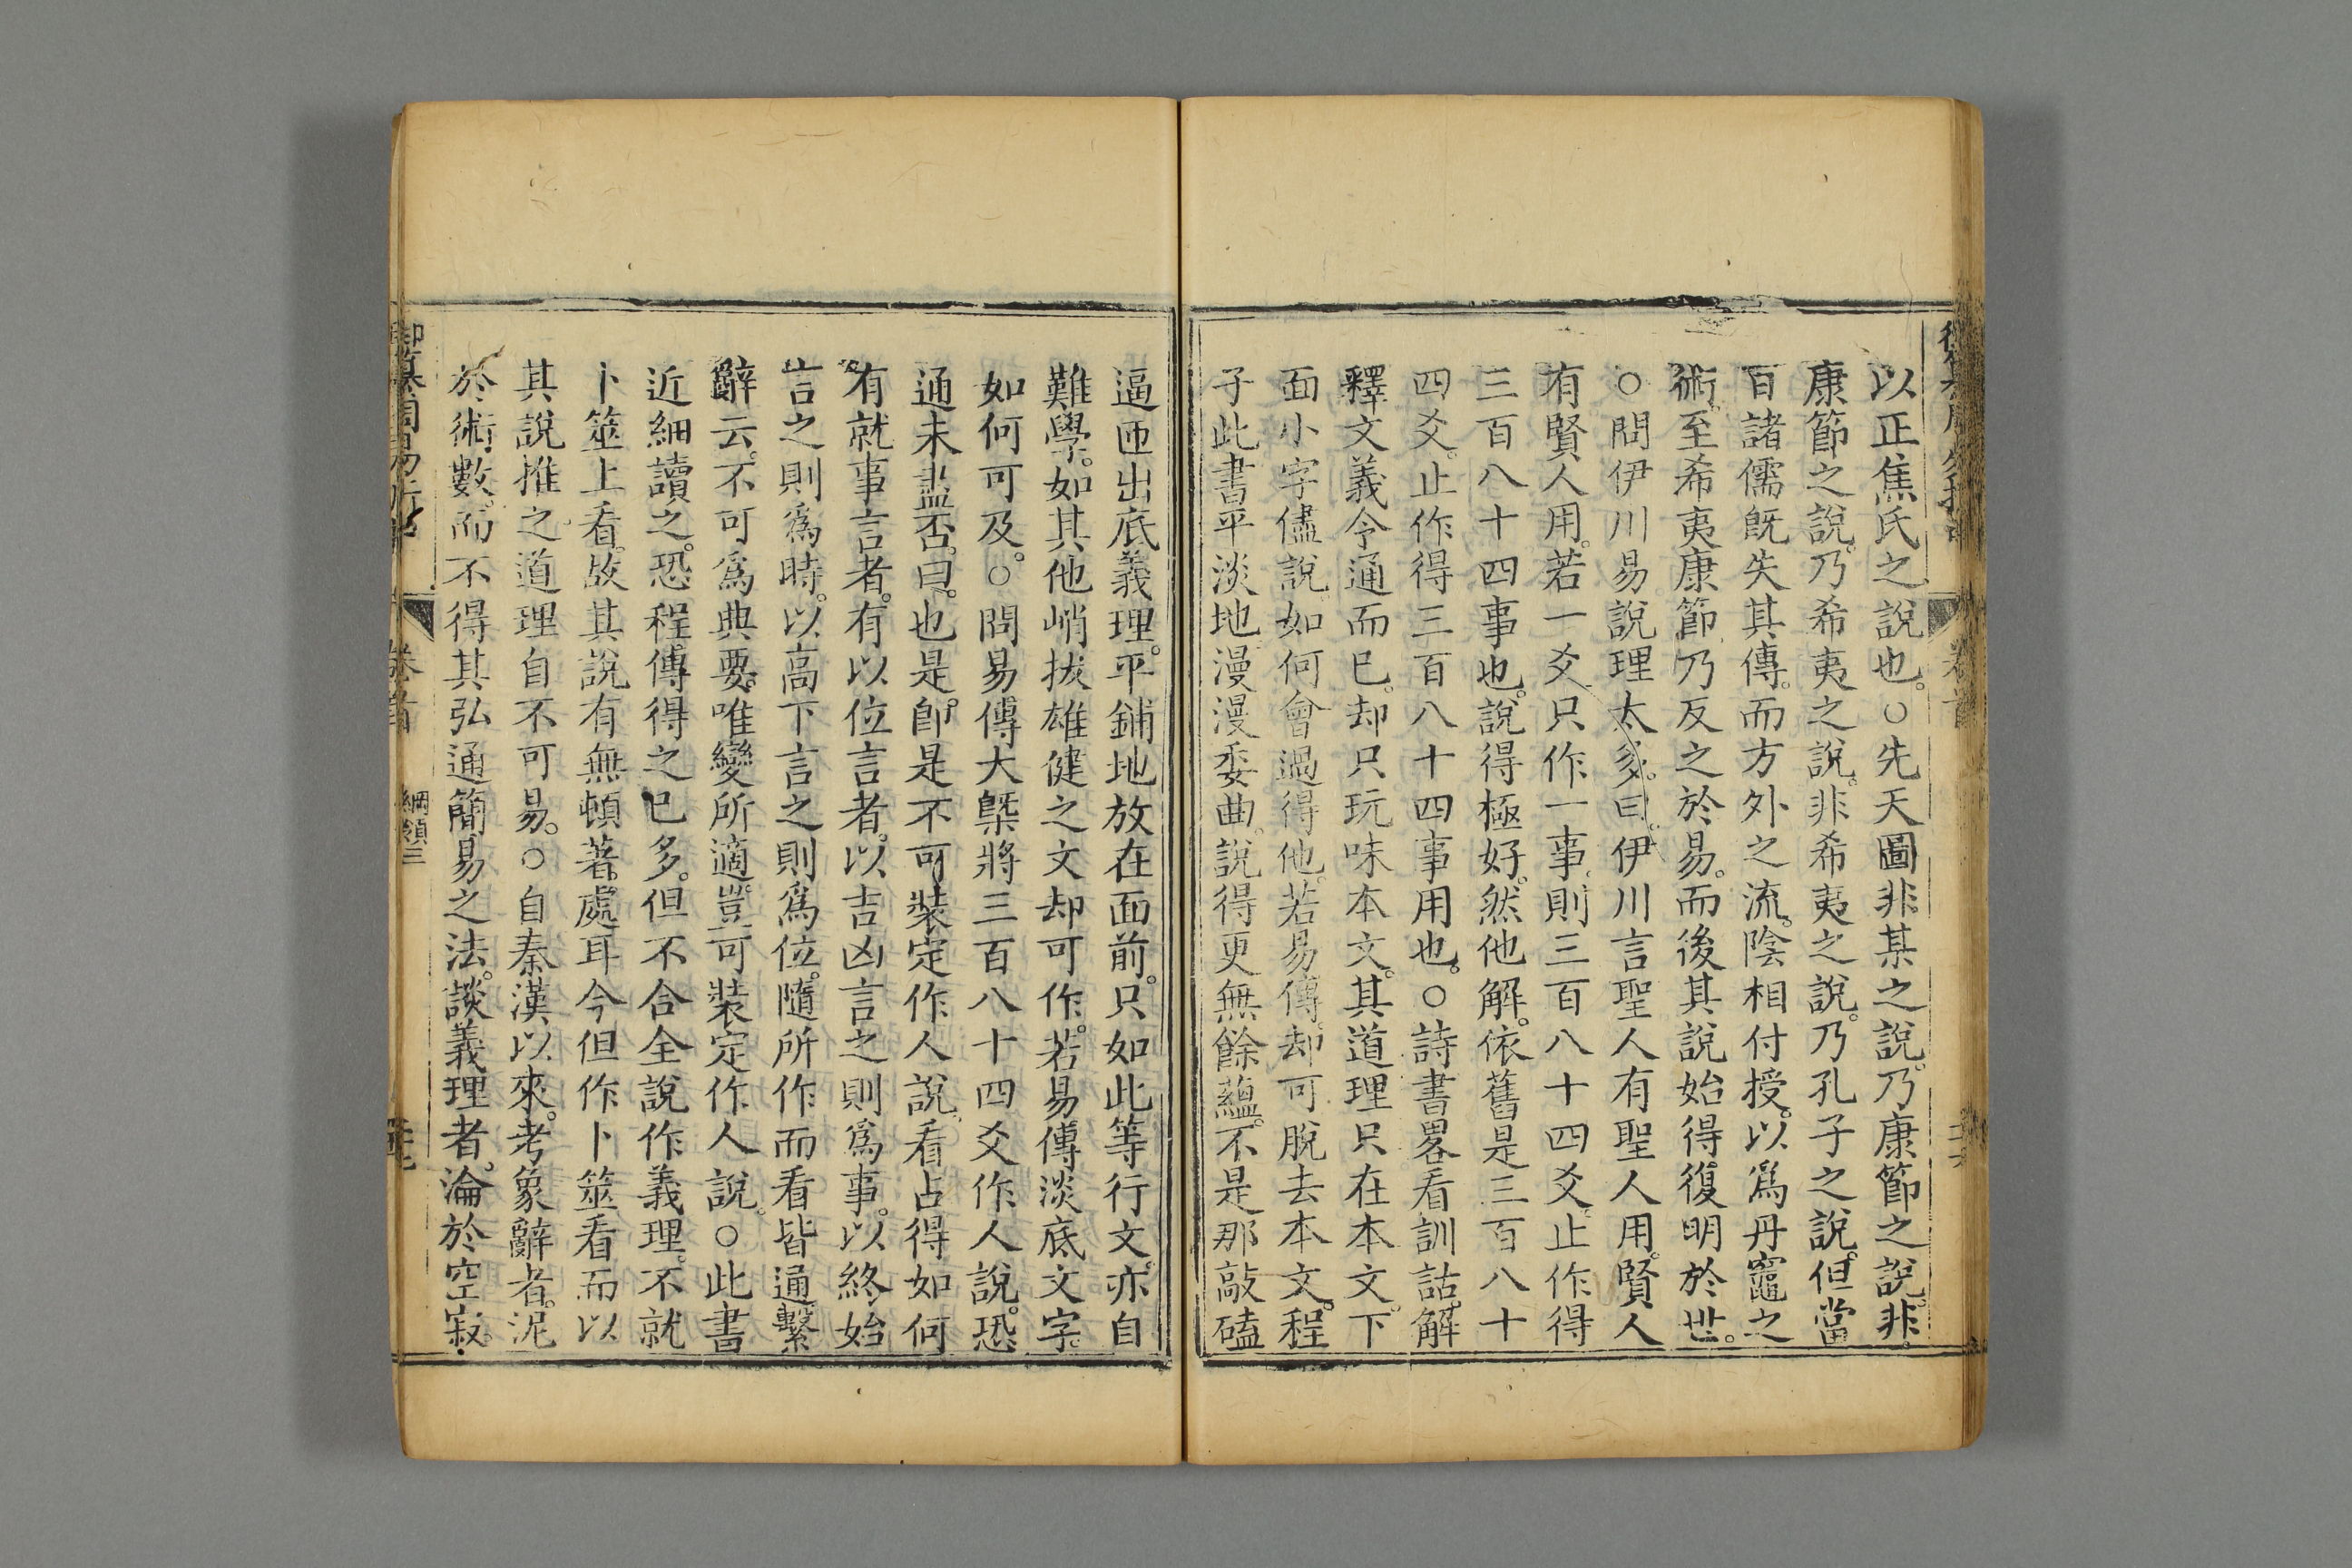 以正焦氏之說也。○先天圖非某之說。乃康節之說。非
康節之說。乃希夷之說。非希夷之說。乃孔子之說。但當
日諸儒旣失其傳。而方外之流。陰相付授。以爲丹竈之
術。至希夷康節乃反之於易。而後其說始得復明於世。
○問伊川易說理太多。曰。伊川言聖人有聖人用。賢人
有賢人用。若一爻只作一事。則三百八十四爻。止作得
三百八十四事也。說得極好。然他解。依舊是三百八十
四爻。止作得三百八十四事用也。○詩書畧看訓詁。解
釋文義令通而已。却只玩味本文。其道理只在本文。下
面小字儘說。如何會過得他。若易傳。却可脫去本文。程
子此書平淡地漫漫委曲。說得更無餘蘊。不是那敲磕
逼匝出底義理。平鋪地放在面前。只如此等行文。亦自
難學。如其他峭拔雄健之文却可作。若易傳淡底文字。
如何可及。○問易傳大槩將三百八十四爻作人說。恐
通未盡否。曰。也是。卽是不可裝定作人說。看占得如何
有就事言者。有以位言者。以吉凶言之則爲事。以終始
言之則爲時。以高下言之則爲位。隨所作而看皆通繫
辭云。不可爲典要。唯變所適。豈可裝定作人說。○此書
近細讀之。恐程傳得之已多。但不合全說作義理。不就
卜筮上看。故其說有無頓著處耳今但作卜筮看而以
其說推之道理自不可易。○自秦漢以來。考象辭者。泥
於術數。而不得其弘通簡易之法。談義理者。淪於空寂。
御纂周易折中
卷首
綱領三